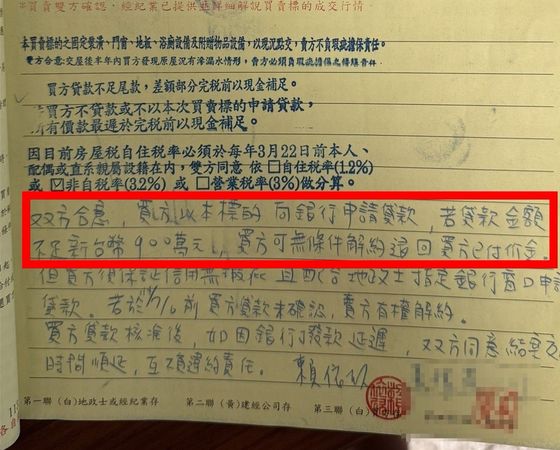 *買賣雙方確認,經紀業已提供並詳細解說買賣標的成交行情
本買賣標的之固定裝潢、門窗、地板、浴廁設備及附贈物品設備,以現況點交,賣方不負瑕疵擔保責任。
雙方合意:交屋後半年內買方發現原屋況有滲漏水情形,賣方必須負瑕疵擔保之修繕責任
買方貸款不足尾款,差額部分完稅前以現金補足。
買方不貸款或不以本次買賣標的申請貸款,
所有價款最遲於完稅前以現金補足。
因目前房屋稅自住稅率必須於每年3月22日前本人、
配偶或直系親屬設籍在內,雙方同意 依 □自住稅率(1.2%)
或 ☑非自住稅率(3.2%) 或 □營業稅率(3%)做分算。
双方合意,買方以本標的 向銀行申請貸款,若貸款金額
不足新台幣900萬元,買方可無條件解約退回買方已付价金。
但買方須保証信用無瑕疵 且配合地政士指定銀行窗口申請
貸款。若於 前買方貸款未確認,賣方有權解約。
買方貸款核准後,如因銀行撥款延遲,双方同意結案交
時間順延,互不負違約責任。
第一聯 (白)地政士或經紀業存 第二聯 (黃)建經公司存 第三聯